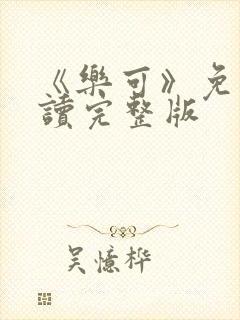 《樂可》免
讀完整版
吴憶桦